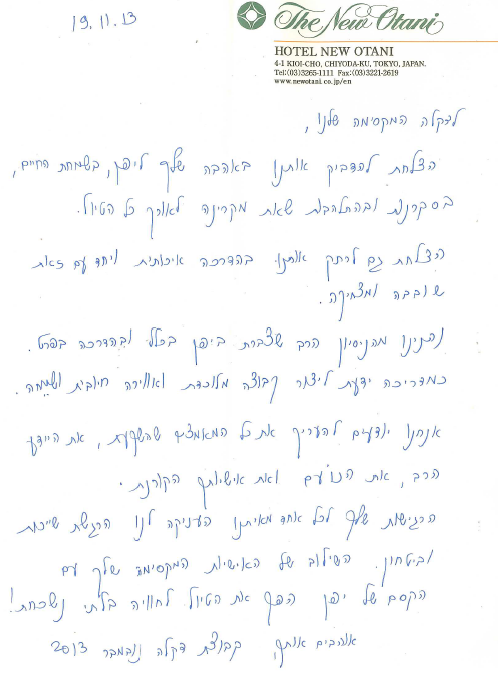 19.11.13
The New Otani
HOTEL NEW OTANI
4-1 KIOI-CHO, CHIYODA-KU, TOKYO, JAPAN.
Tel:(03)3265-1111 Fax:(03)3221-2619
www.newotani.co.jp/en
לדקלה המקסימה שלנו,
הצלחת להדביק אותנו באהבה שלך ליפן, בשמחת החיים,
בסקרנות ובהתלהבות שאת מקרינה לאורך כל הטיול.
הצלחת גם לרתק אותנו בהדרכה איכותית ויחד עם זאת
שובבה ומצחיקה.
נהנינו מהניסיון הרב שצברת ביפן בכלל ובהדרכה בפרט.
כמדריכה ידעת ליצור קבוצה מלוכדת ואווירה חיובית ושמחה.
אנחנו יודעים להעריך את כל המאמצים שהשקעת, את הידע
הרב, את הנועם ואת אישיותך הקורנת.
הרגישות שלך לכל אחד מאיתנו העניקה לנו הרגשת שייכות
וביטחון. השילוב של האישיות המקסימה שלך עם
הקסם של יפן הפך את הטיול לחוויה בלתי נשכחת!
אוהבים אותך, קבוצת דקלה נובמבר 2013